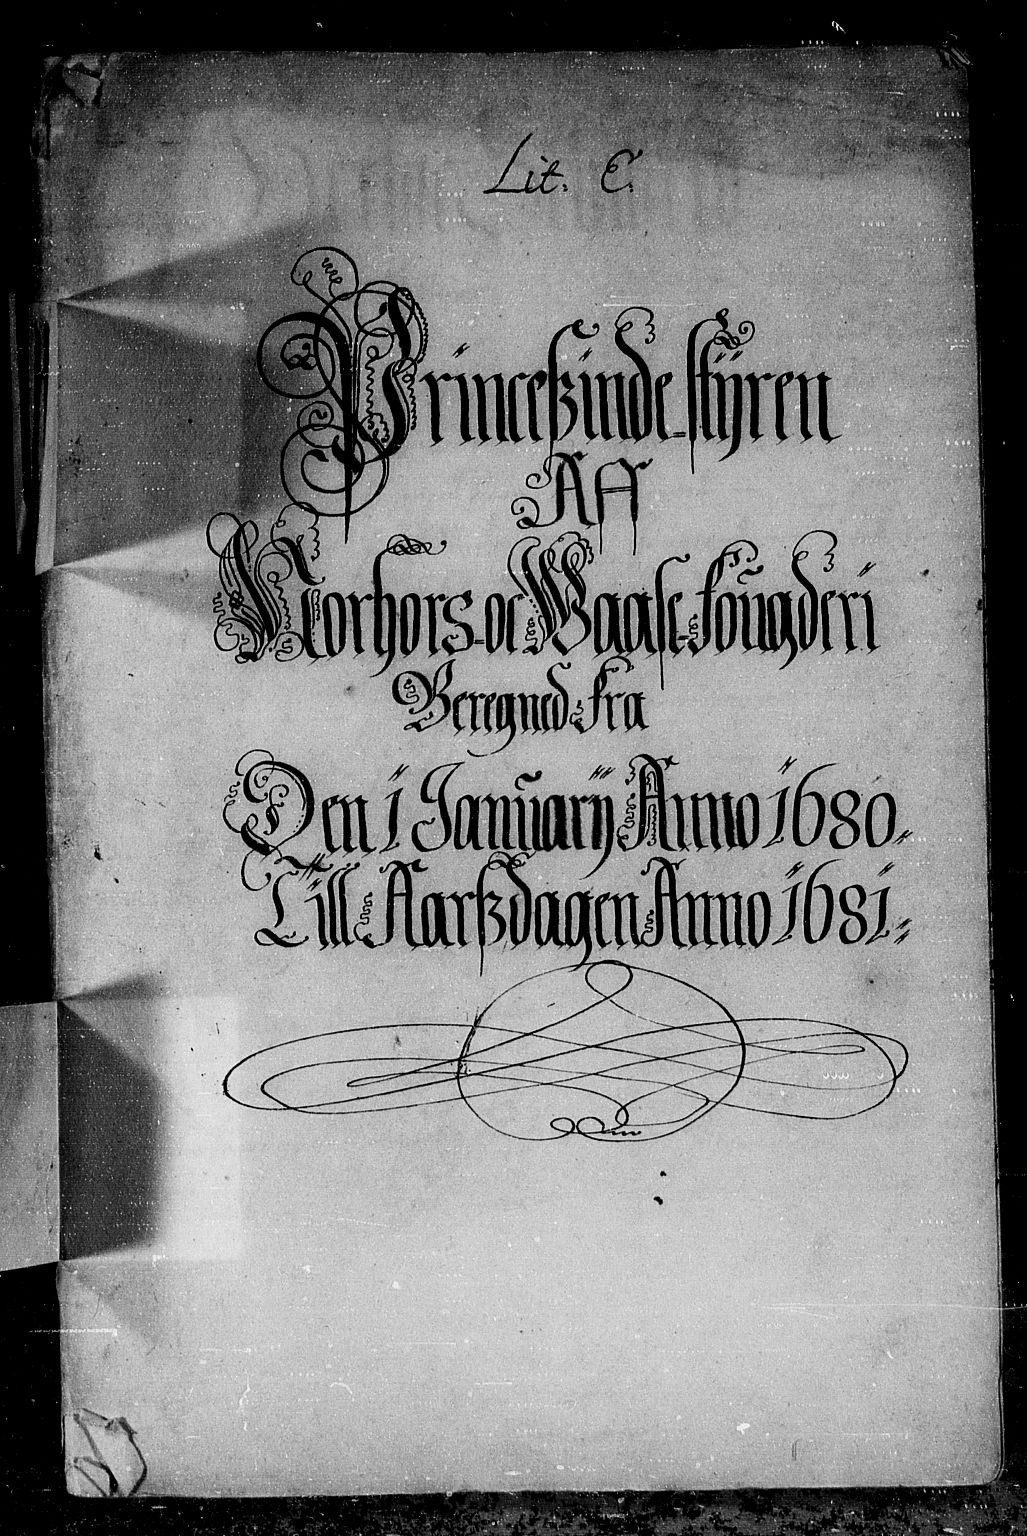 Lit. E.
Princeßinde-styren
AF
Norhors-oc Waase-fougderi
Beregned fra
Den 1 Januarij Anno 1680.
Till Aarßdagen Anno 1681.